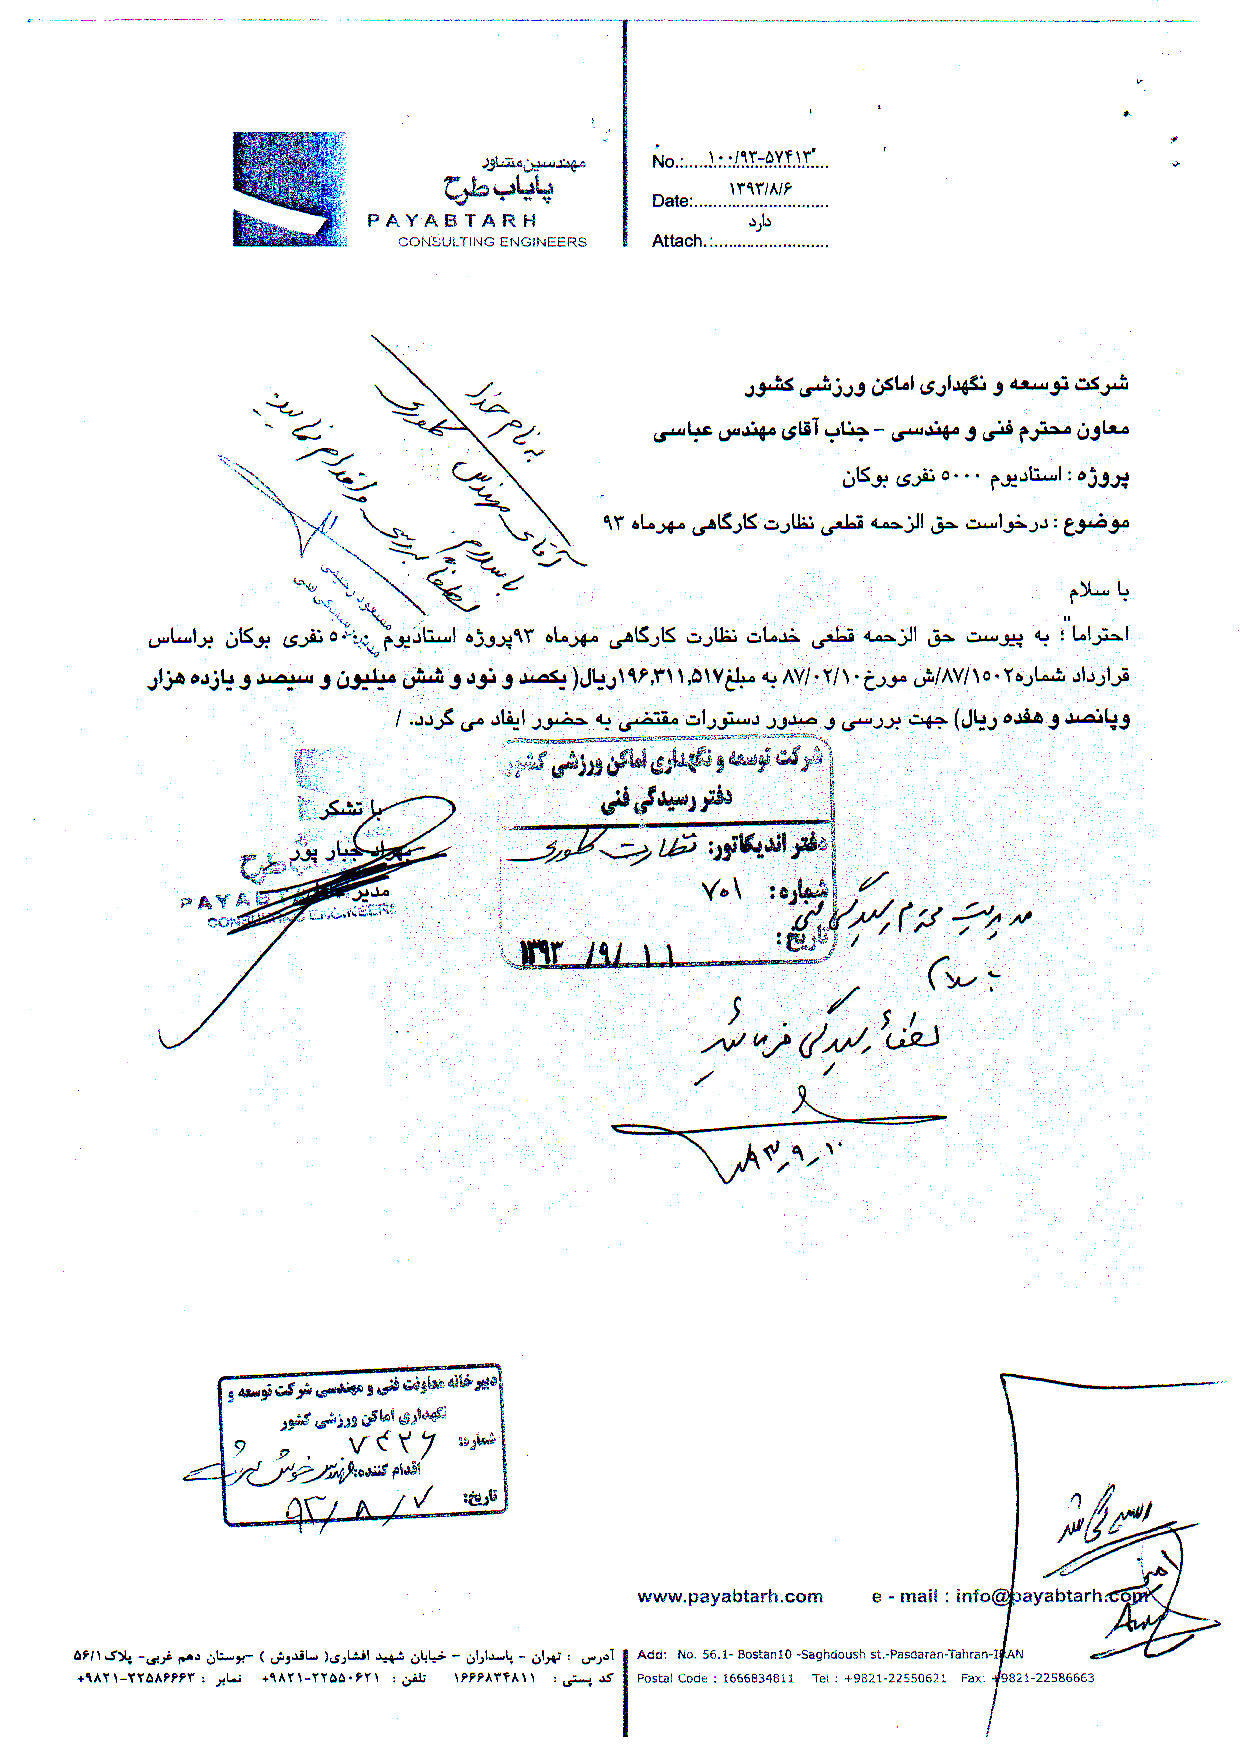 مهندسین مشاور
پایاب طرح
PAYABTARH
CONSULTING ENGINEERS
No.:.....۱۰۰/۹۳-۵۷۴۱۳....
Date:....۱۳۹۳/۸/۶....
Attach.:....دارد....
شرکت توسعه و نگهداری اماکن ورزشی کشور
معاون محترم فنی و مهندسی – جناب آقای مهندس عباسی
پروژه : استادیوم ۵۰۰۰ نفری بوکان
موضوع : درخواست حق الزحمه قطعی نظارت کارگاهی مهرماه ۹۳
به نام خدا
آقای مهندس
با سلام
لطفاً بررسی و اقدام نمایید
با سلام
احتراماً ؛ به پیوست حق الزحمه قطعی خدمات نظارت کارگاهی مهرماه ۹۳پروژه استادیوم ۵۰۰۰ نفری بوکان براساس
قرارداد شماره۸۷/۱۵۰۲/ش مورخ۸۷/۰۲/۱۰ به مبلغ۱۹۶,۳۱۱,۵۱۷ریال( یکصد و نود و شش میلیون و سیصد و یازده هزار
و پانصد و هفده ریال) جهت بررسی و صدور دستورات مقتضی به حضور ایفاد می گردد. /
با تشکر
بهراد جبار پور
مدیر
PAYAB
CONSULTING ENGINEERS
شرکت توسعه و نگهداری اماکن ورزشی کشور
دفتر رسیدگی فنی
دفتر اندیکاتور: نظارت
شماره: ۷۰۱
تاریخ: ۱۳۹۳/۹/۱۱
مدیریت محترم رسیدگی فنی
با سلام
لطفاً رسیدگی فرمائید
۹۳-۹-۱۰
دبیرخانه معاونت فنی و مهندسی شرکت توسعه و
نگهداری اماکن ورزشی کشور
شماره: ۷۴۲۶
اقدام کننده: مهندس
تاریخ: ۹۳/۸/۷
www.payabtarh.com e - mail : info@payabtarh.com
آدرس : تهران – پاسداران – خیابان شهید افشاری( ساقدوش ) –بوستان دهم غربی– پلاک ۵۶/۱
کد پستی : ۱۶۶۶۸۳۴۸۱۱ تلفن : ۲۲۵۵۰۶۲۱-۹۸۲۱+ نمابر : ۲۲۵۸۶۶۶۳-۹۸۲۱+
Add: No. 56.1- Bostan10 -Saghdoush st.-Pasdaran-Tahran-IRAN
Postal Code : 1666834811 Tel : +9821-22550621 Fax: +9821-22586663